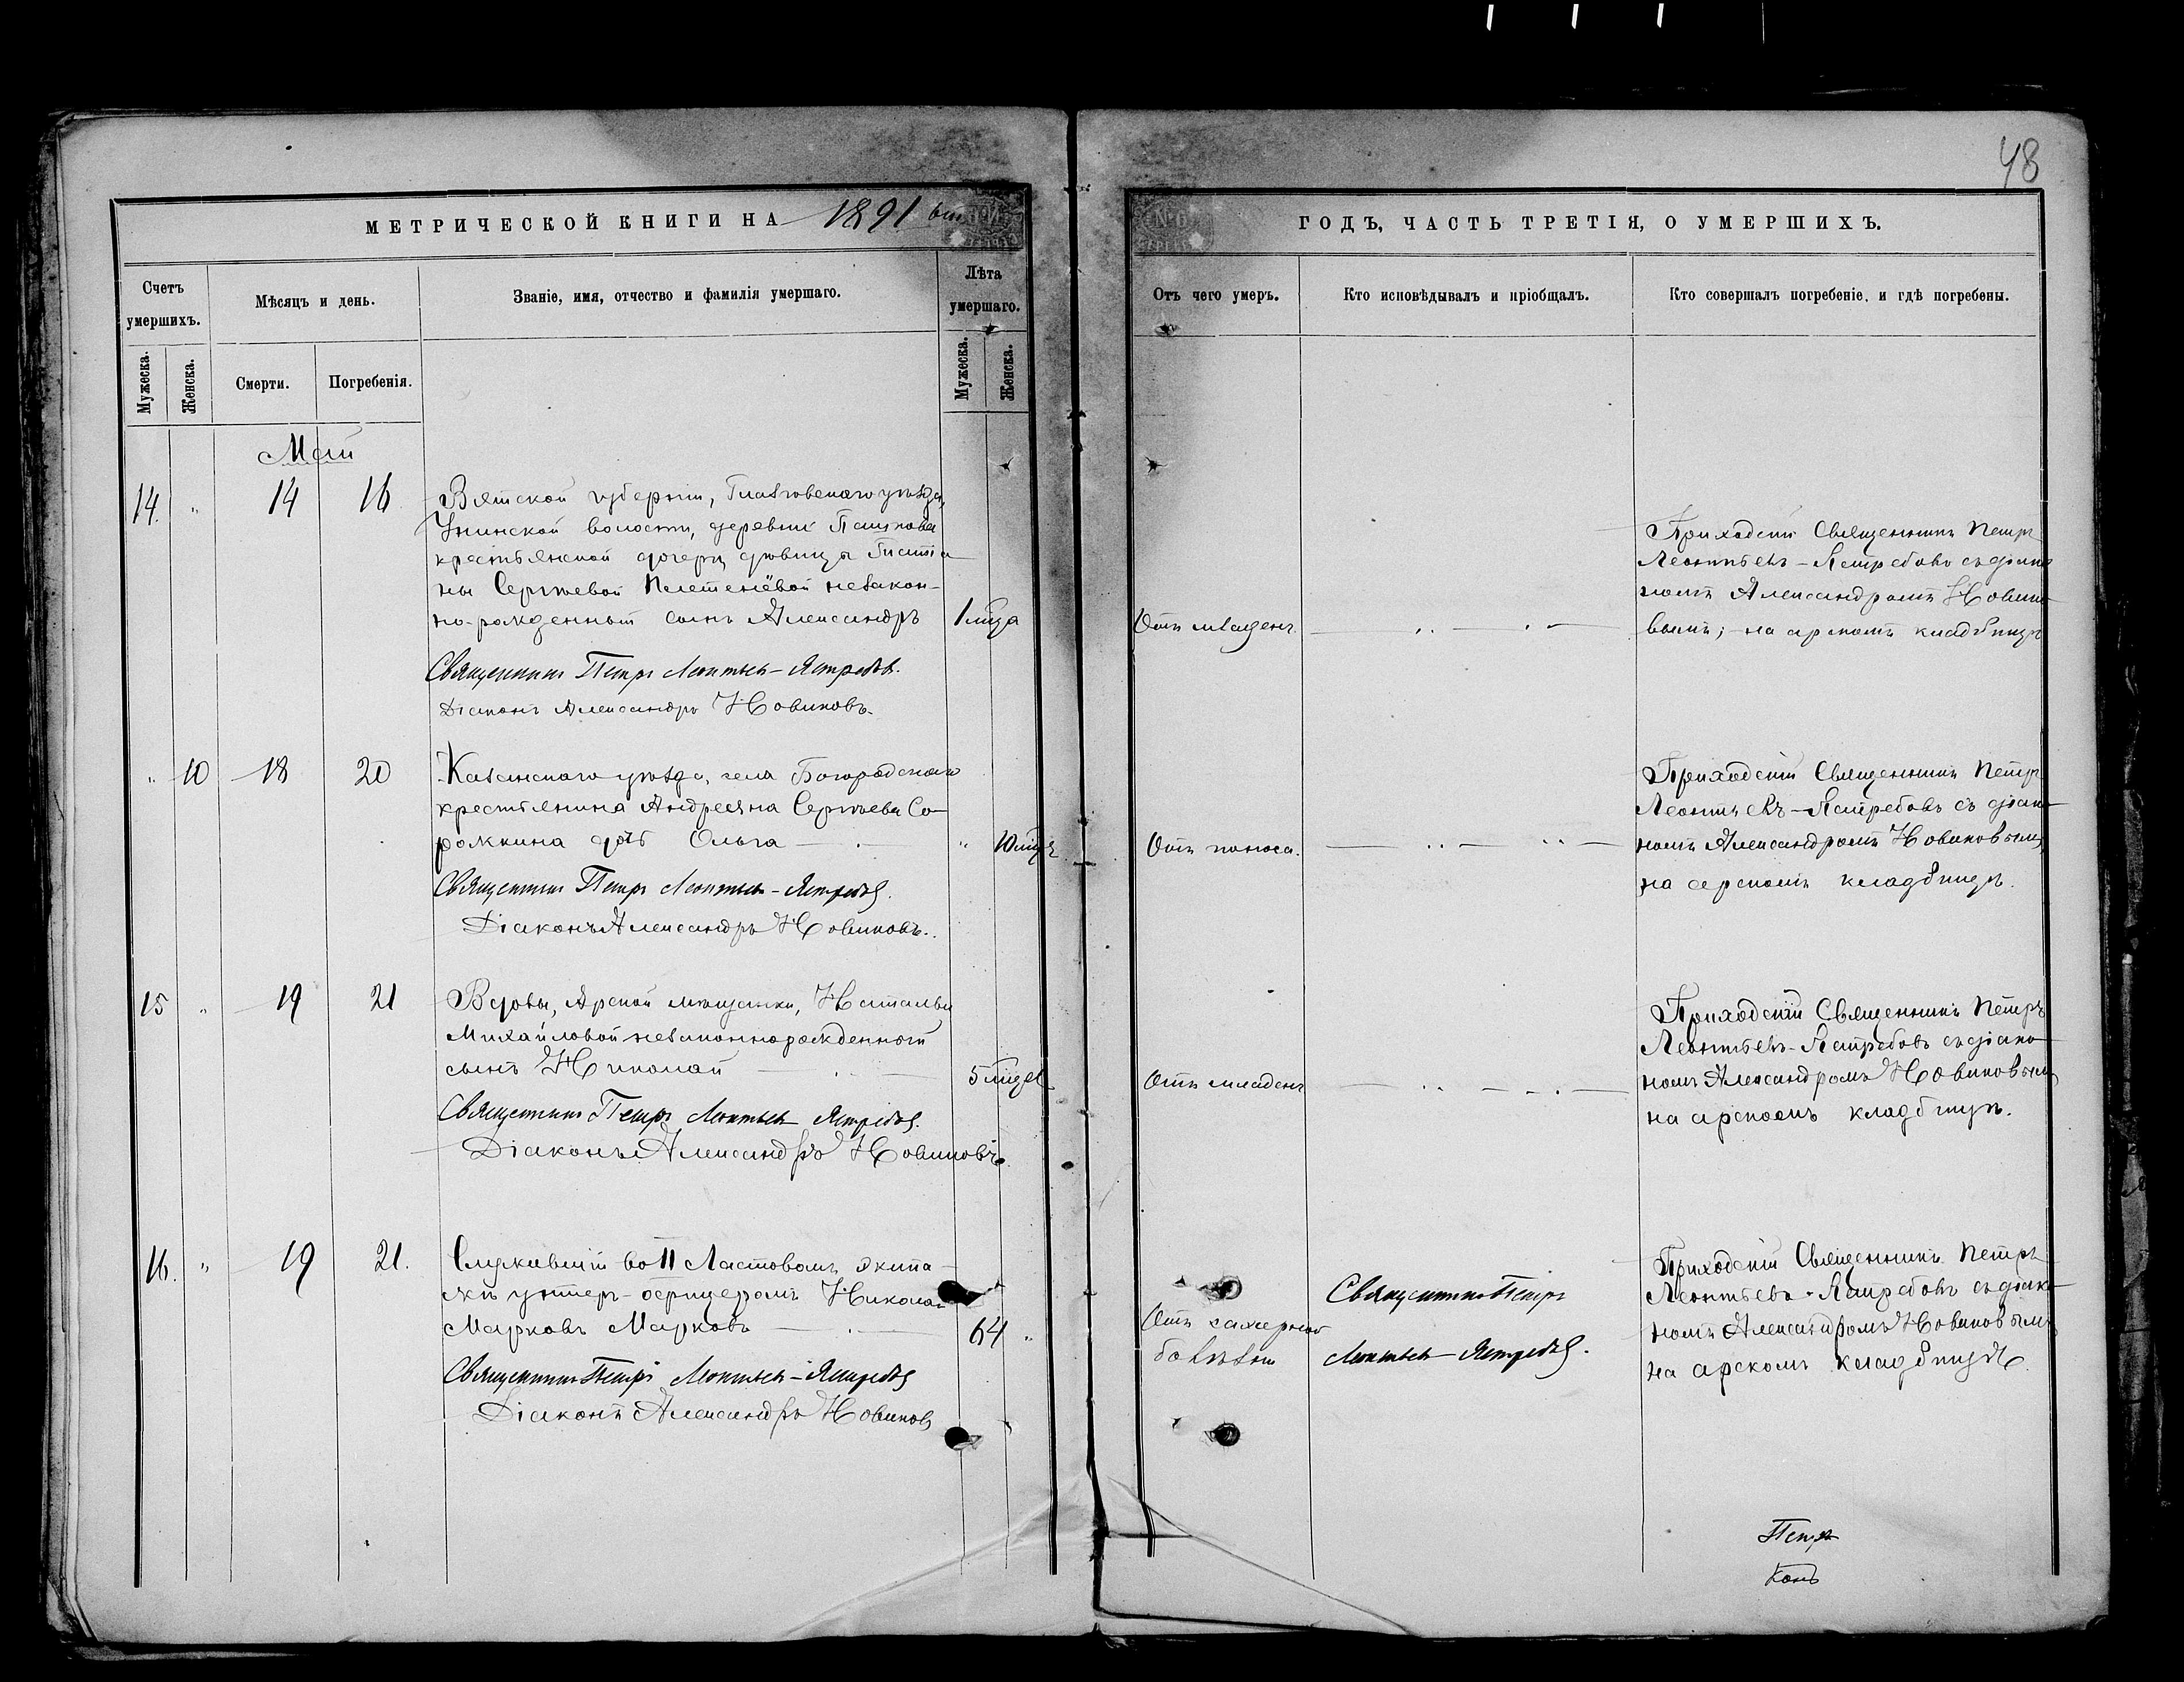 48
МЕТРИЧЕСКОЙ КНИГИ НА 1891
ГОДЪ, ЧАСТЬ ТРЕТІЯ, О УМЕРШИХЪ.
Счетъ умершихъ.
Мѣсяцъ и день.
Званіе, имя, отчество и фамилія умершаго.
Лѣта умершаго.
Отъ чего умеръ.
Кто исповѣдывалъ и пріобщалъ.
Кто совершалъ погребеніе, и гдѣ погребены.
Мужеска.
Женска.
Смерти.
Погребенія.
Мужеска.
Женска.
Май
14. " 14 16
Вятской губерніи, Глазовскаго уѣзда,
Унинской волости, деревни
крестьянской дочери дѣвицы
ны Сергѣевой Плетенёвой незакон-
но-рожденный сынъ Александръ
1 мѣсяца
Отъ младенч.
Приходскій Священникъ Петръ
Леонтьевъ-Ястребовъ съ діако
номъ Александромъ Новико
вымъ; на арскомъ кладбищѣ
Священникъ Петръ Леонтьевъ-Ястребовъ.
Діаконъ Александръ Новиковъ.
" 10 18 20
Казанскаго уѣзда, села Богородскаго
крестьянина Андреяна Сергѣева Со-
рожкина дочь Ольга
" 10 мѣсяц.
Отъ поноса.
Приходскій Священникъ Петръ
Леонтьевъ-Ястребовъ съ діако-
номъ Александромъ Новиковымъ,
на арскомъ кладбищѣ.
Священникъ Петръ Леонтьевъ-Ястребовъ.
Діаконъ Александръ Новиковъ.
15 " 19 21
Вдовы, Арской мѣщанки, Натальи
Михайловой незаконнорожденный
сынъ Николай
5 мѣсяц.
Отъ младенч.
Приходскій Священникъ Петръ
Леонтьевъ-Ястребовъ съ діако-
номъ Александромъ Новиковымъ
на арскомъ кладбищѣ.
Священникъ Петръ Леонтьевъ Ястребовъ.
Діаконъ Александръ Новиковъ.
16. " 19 21.
Служившій во II Ластовомъ экипа-
жѣ унтеръ-офицеромъ Николай
Марковъ Марковъ
64 "
Отъ
болѣзни
Священникъ Петръ
Леонтьевъ-Ястребовъ.
Приходскій Священникъ Петръ
Леонтьевъ-Ястребовъ съ діако-
номъ Александромъ Новиковымъ
на арскомъ кладбищѣ.
Священникъ Петръ Леонтьевъ-Ястребовъ
Діаконъ Александръ Новиковъ
Петръ